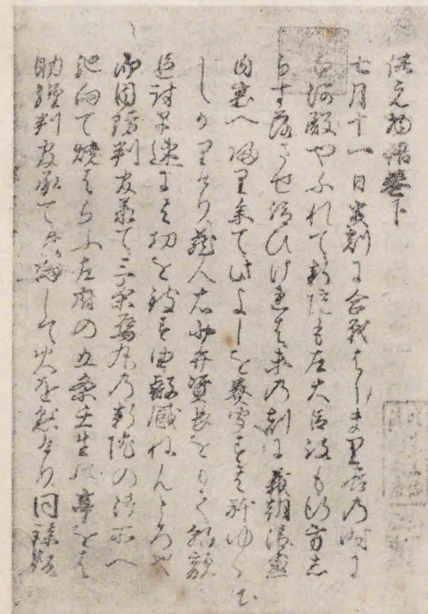 保元物語巻下
七月十一日寅刻に合戦はしまり辰の時に
白河殿やふれて新院も左大臣殿も行方志
らす落させ給ひけれは未の刻に義朝清盛
内裏へ帰り参て此よしを奏聞す
しかりけり蔵人右少弁資長をもて朝敵
追討早速にその功を致す由叡感ねんころ也
周防判官承て三条烏丸の新院の御所へ
馳向て焼はらふ左府の五条壬生の亭をは
助経判官承て発向して火を懸けり同謀叛